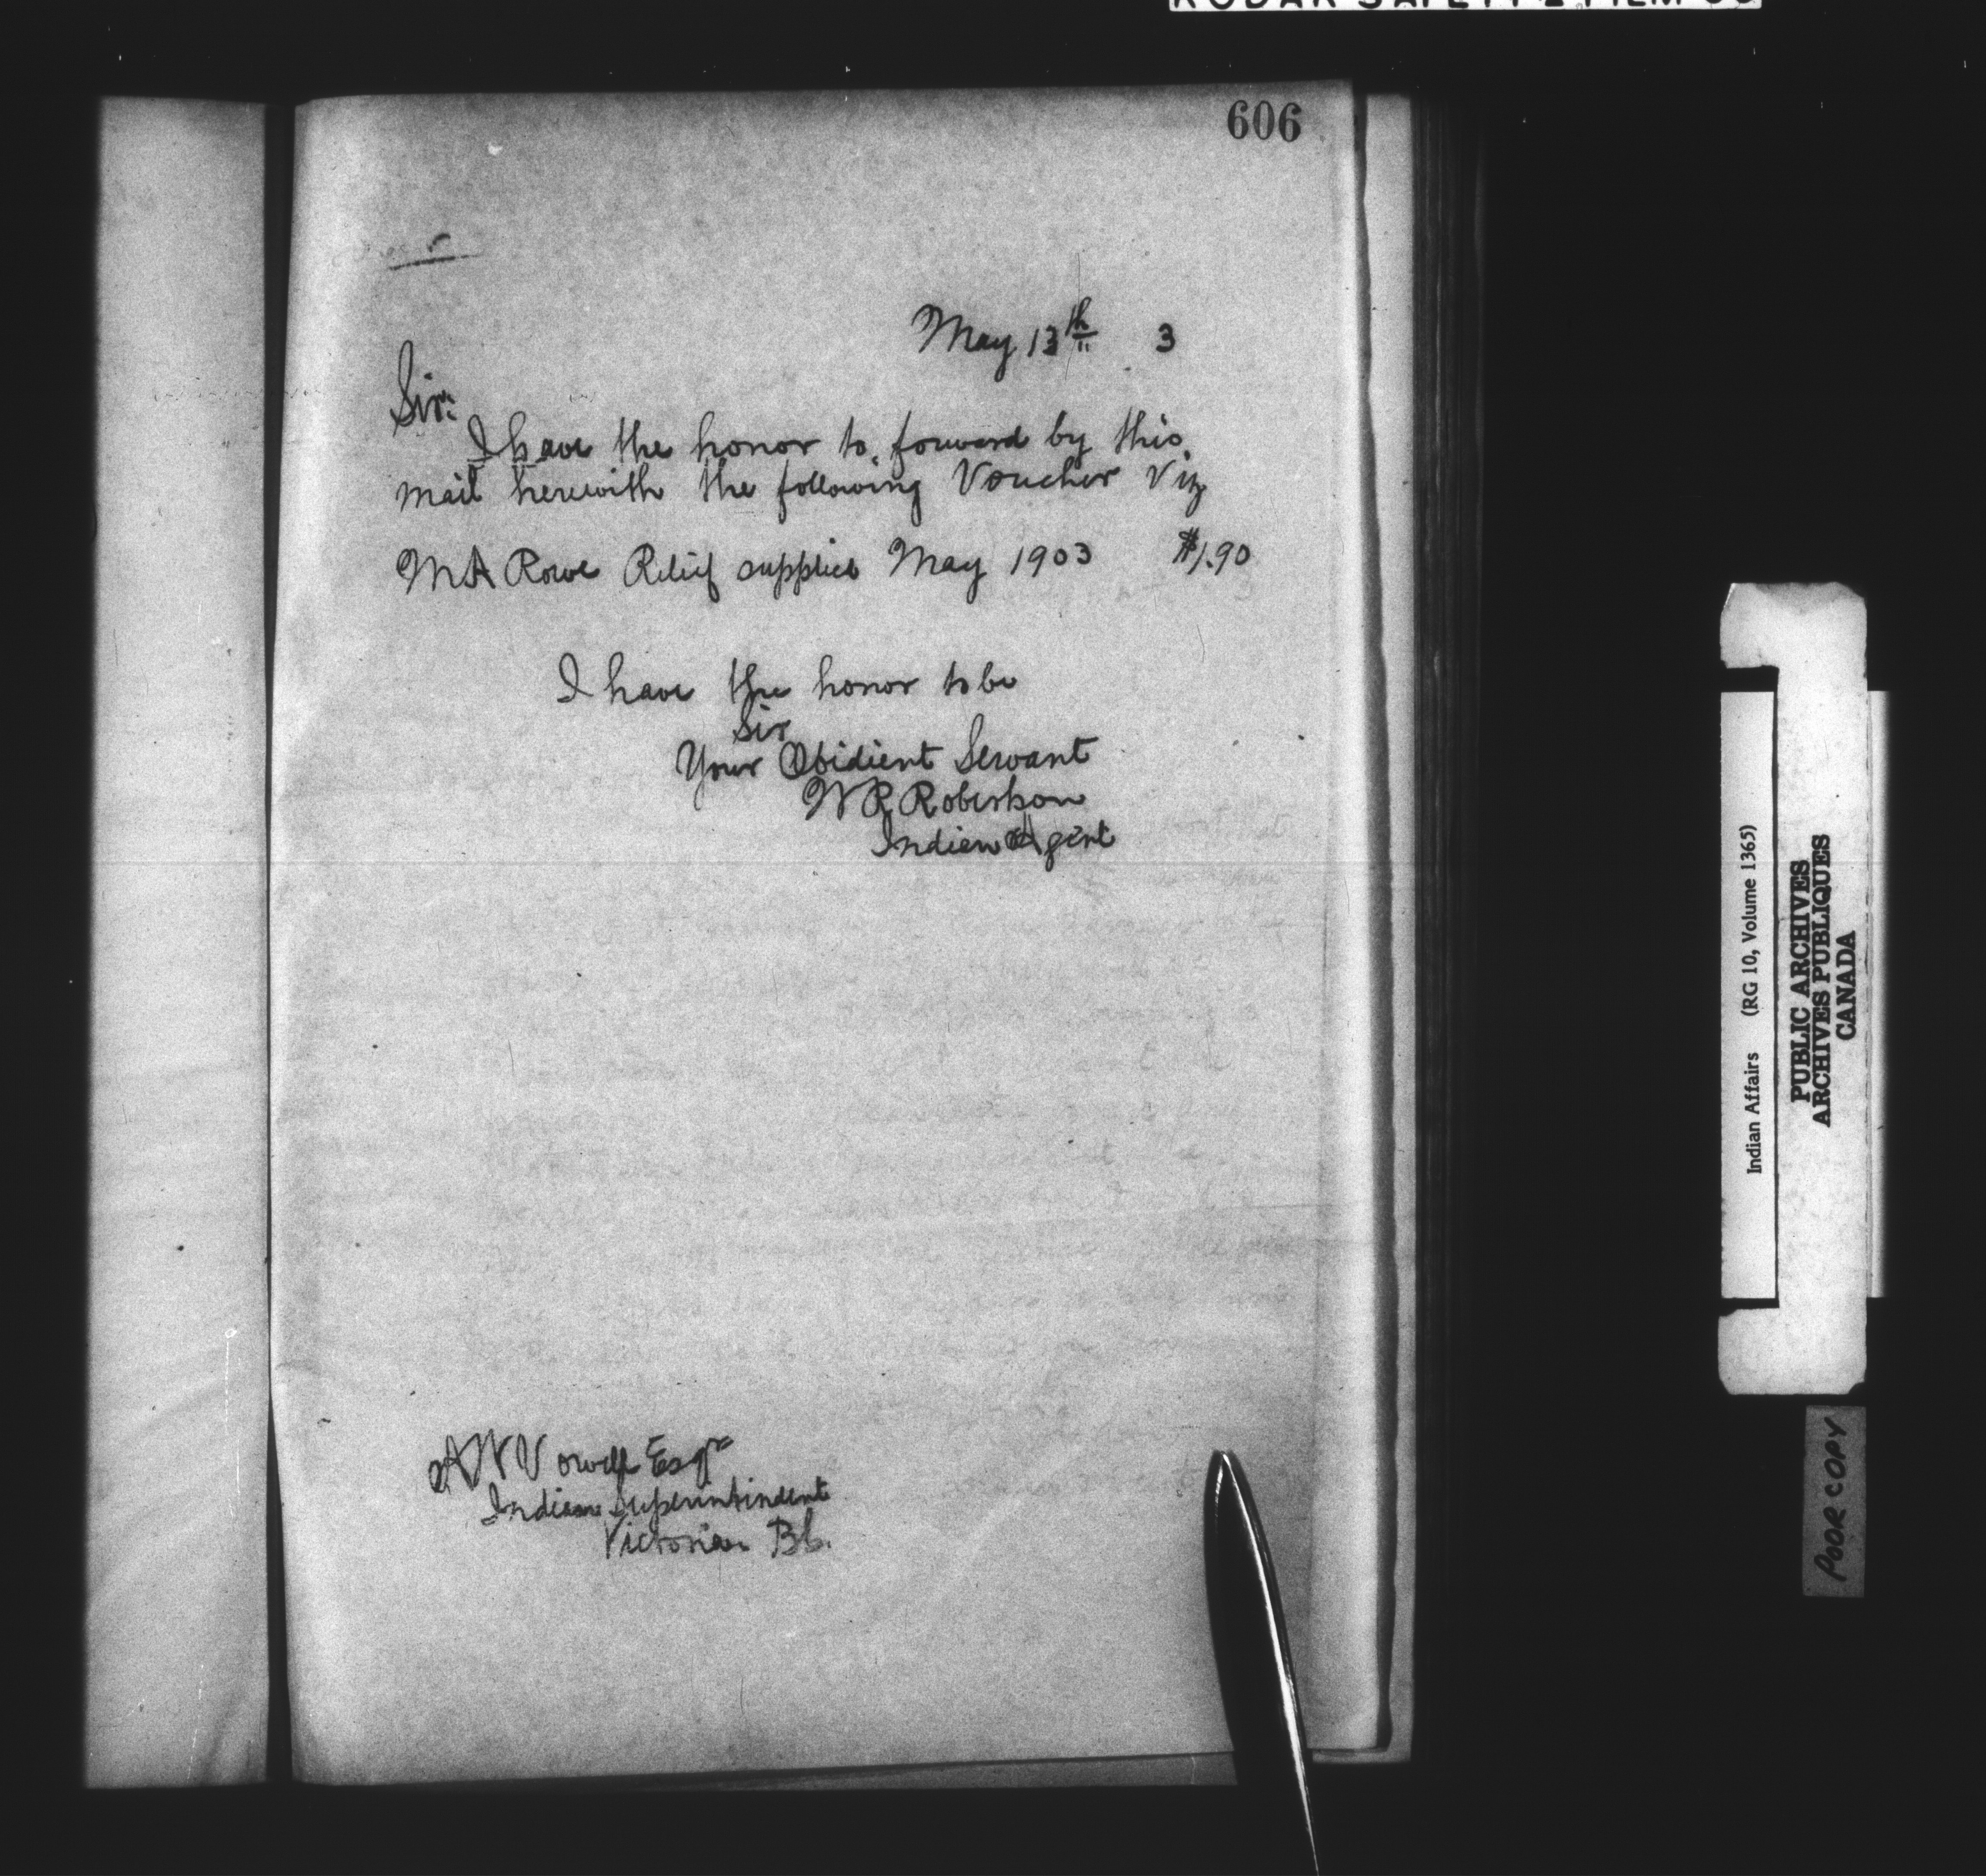 606
May 13th 3
Sir:
I have the honor to forward by this
mail herewith the following Voucher Viz
MA Rowe Relief supplies May 1903 $1.90
I have the honor to be
Sir
Your Obidient Servant
WR Robertson
Indian Agent
AW Vowell Esqr
Indian Superintindent
Victoria BC.
Indian Affairs (RG 10, Volume 1365)
PUBLIC ARCHIVES
ARCHIVES PUBLIQUES
CANADA
POOR COPY